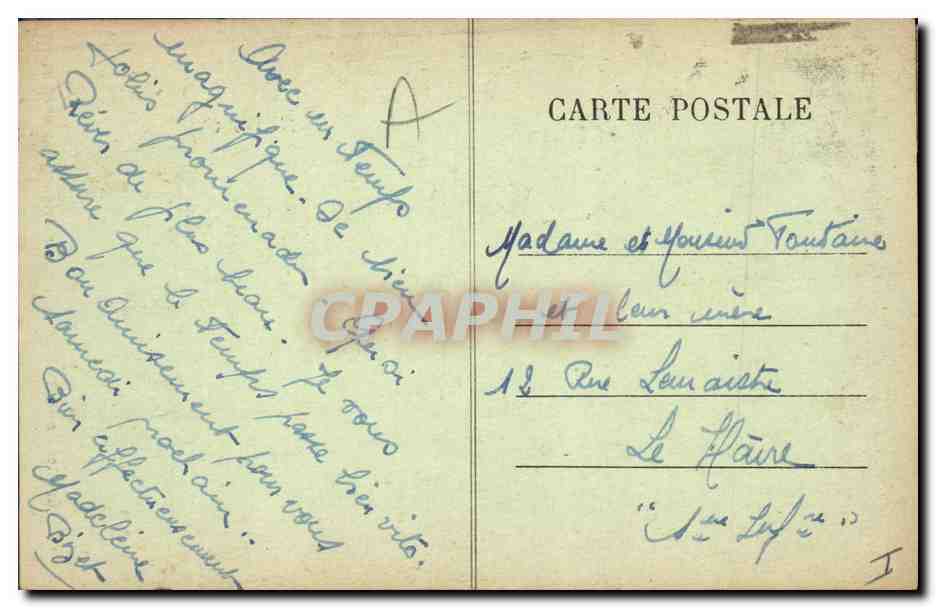 Avec un temps
magnifique. De bien
jolies promenades
Rêver de plus beau. Je vous
assure que le temps passe bien vite.
Bon amusement pour vous
samedi prochain.
Bien affectueusement
Madeleine
Bizet
A
CARTE POSTALE
Madame et Monsieur Fontaine
et leur mère
12 Rue Lemaistre
Le Hâvre
"Sne Infre"
I
CPAPHIL